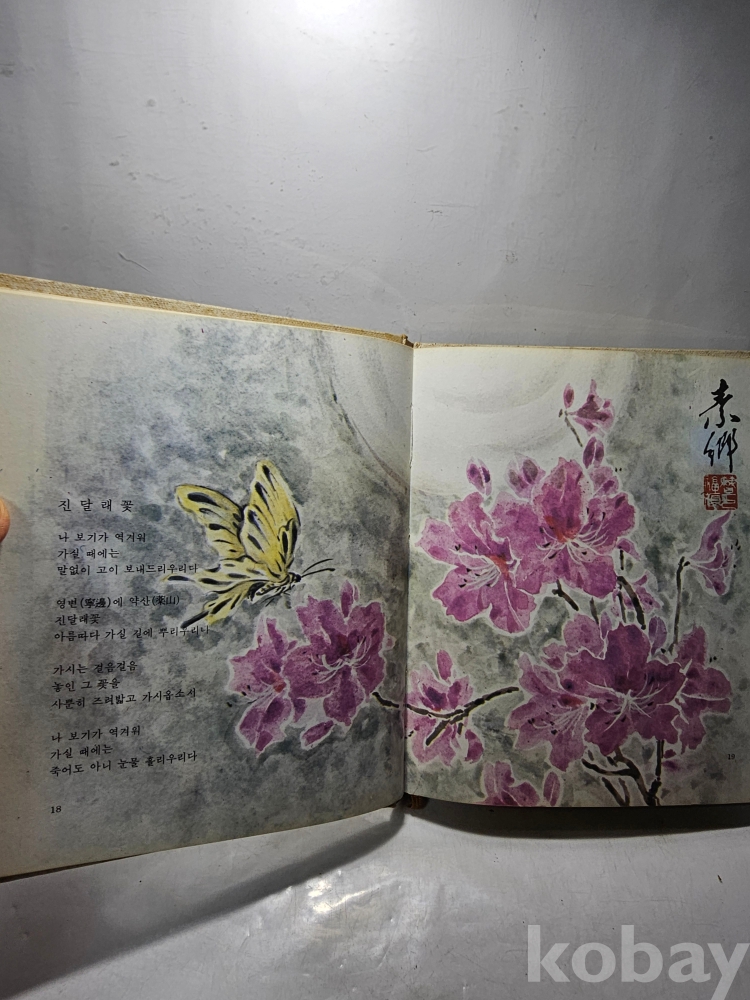 진달래꽃
나 보기가 역겨워
가실 때에는
말없이 고이 보내드리우리다
영변(寧邊)에 약산(藥山)
진달래꽃
아름따다 가실 길에 뿌리우리다
가시는 걸음걸음
놓인 그 꽃을
사뿐히 즈려밟고 가시옵소서
나 보기가 역겨워
가실 때에는
죽어도 아니 눈물 흘리우리다
18
素鄕
19
kobay